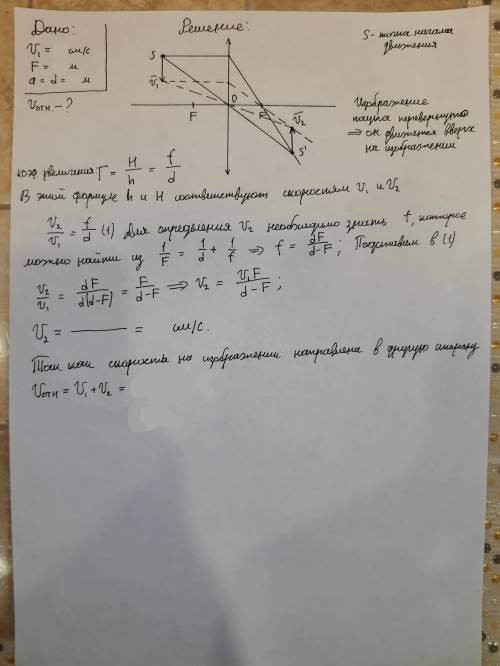 Дано:
V₁ = см/с
F = м
a = d = м
Vотн - ?
Решение:
S
V̄₁
F
O
F
V̄₂
S'
S - точка начала
движения
Изображение
паука перевернуто
⇒ он движется вверх
на изображении
коэф. увеличения: Г = H/h = f/d
В этой формуле h и H соответствуют скоростям V₁ и V₂
V₂/V₁ = f/d (1) Для определения V₂ необходимо знать f, которое
можно найти из 1/F = 1/d + 1/f ⇒ f = dF/(d-F); Подставим в (1)
V₂/V₁ = dF/(d(d-F)) = F/(d-F) ⇒ V₂ = V₁F/(d-F);
V₂ = ——— = см/с.
Так как скорость на изображении направлена в другую сторону
Vотн = V₁ + V₂ =